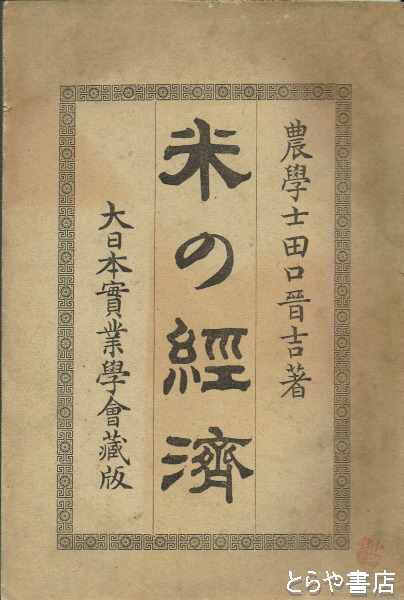 農學士田口晉吉著
米の經濟
大日本實業學會藏版
とらや書店